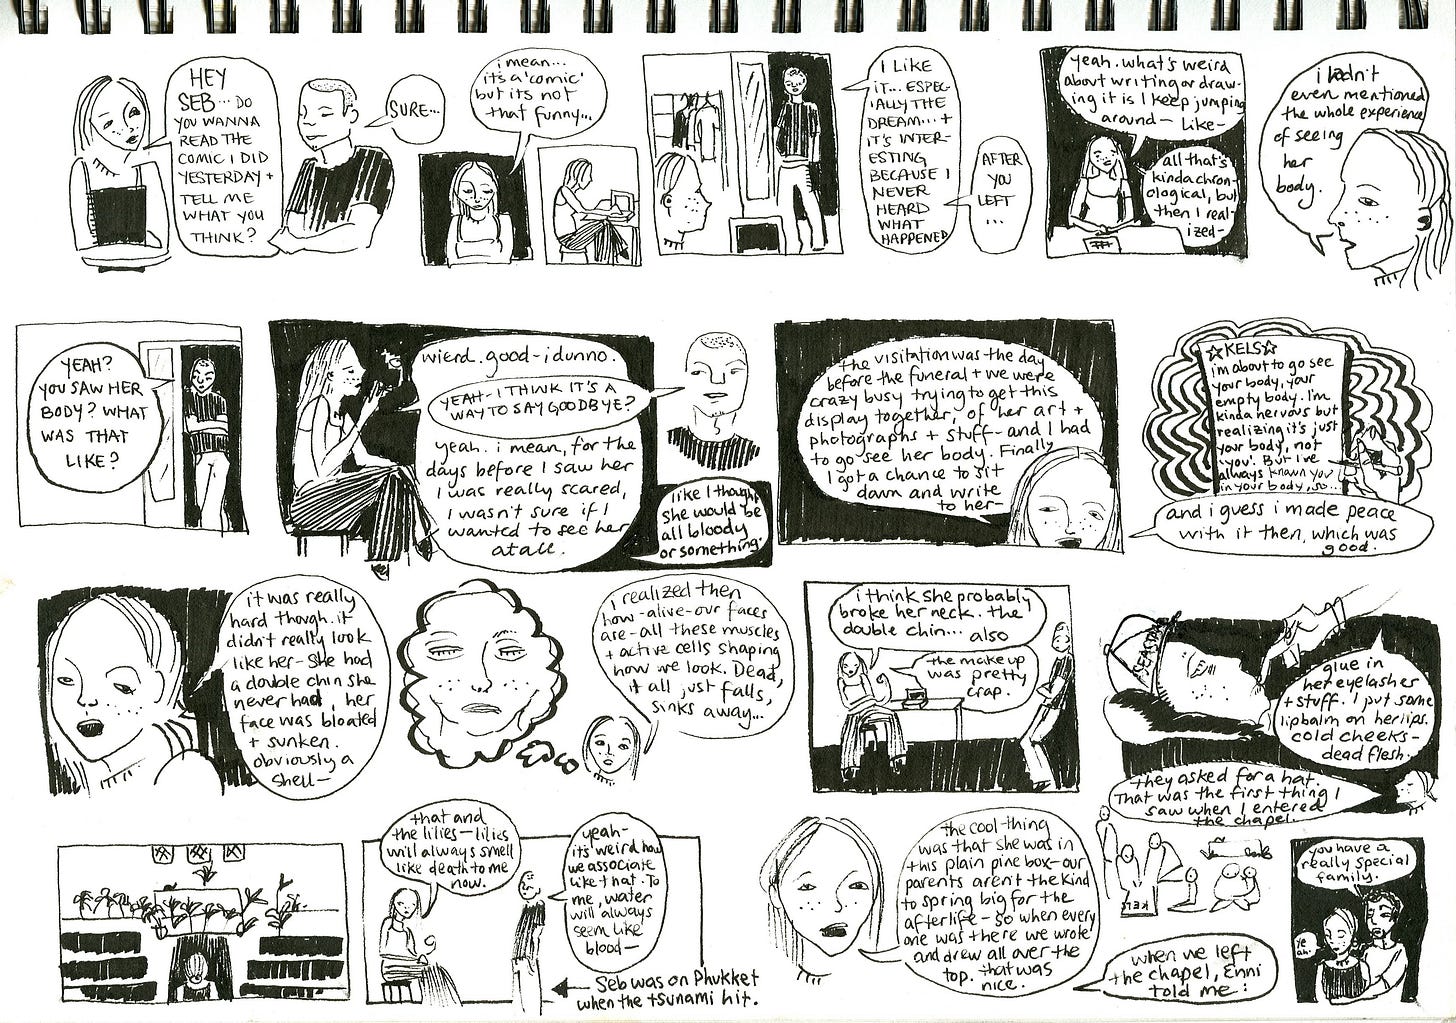 HEY
SEB... DO
YOU WANNA
READ THE
COMIC I DID
YESTERDAY +
TELL ME
WHAT YOU
THINK?
SURE...
i mean...
it's a 'comic'
but its not
that funny...
I LIKE
IT... ESPEC-
IALLY THE
DREAM... +
IT'S INTER-
ESTING
BECAUSE I
NEVER
HEARD
WHAT
HAPPENED
AFTER
YOU
LEFT
...
yeah. what's weird
about writing or draw-
ing it is I keep jumping
around— Like—
all that's
kinda chron-
ological, but
then I real-
ized-
i hadn't
even mentioned
the whole experience
of seeing
her
body.
YEAH?
YOU SAW HER
BODY? WHAT
WAS THAT
LIKE?
wierd. good - i dunno.
YEAH - I THINK IT'S A
WAY TO SAY GOODBYE?
yeah. i mean, for the
days before I saw her
I was really scared,
I wasn't sure if I
wanted to see her
at all.
like I thought
she would be
all bloody
or something.
the visitation was the day
before the funeral + we were
crazy busy trying to get this
display together, of her art +
photographs + stuff - and I had
to go see her body. Finally
I got a chance to sit
down and write
to her-
☆KELS☆
i'm about to go see
your body, your
empty body. I'm
kinda nervous but
realizing it's just
your body, not
'you'. But I've
always known you
in your body, so...
and i guess i made peace
with it then, which was
good.
it was really
hard though. it
didn't really look
like her - she had
a double chin she
never had, her
face was bloated
+ sunken.
obviously a
shell—
I realized then
how - alive - our faces
are - all these muscles
+ active cells shaping
how we look. Dead,
it all just falls,
sinks away...
i think she probably
broke her neck. the
double chin... also
the makeup
was pretty
crap.
SEASTAR
glue in
her eyelashes
+ stuff. I put some
lipbalm on her lips.
cold cheeks -
dead flesh.
they asked for a hat.
That was the first thing I
saw when I entered
the chapel.
that and
the lilies — lilies
will always smell
like death to me
now.
yeah-
it's weird how
we associate
like that. To
me, water
will always
seem like
blood—
Seb was on Phukket
when the tsunami hit.
the cool thing
was that she was in
this plain pine box - our
parents aren't the kind
to spring big for the
afterlife - so when every
one was there we wrote
and drew all over the
top. that was
nice.
KELS
when we left
the chapel, Enni
told me:
you have a
really special
family.
ye
ah.